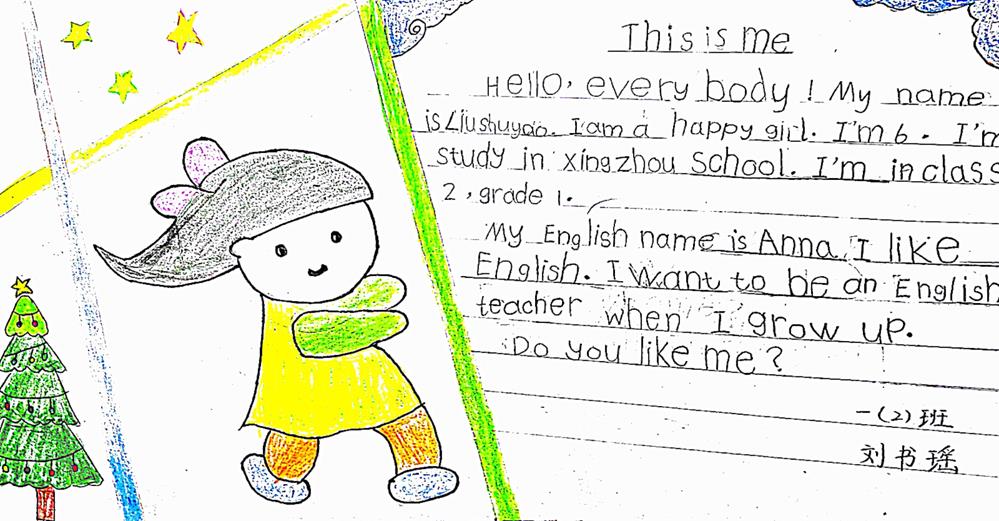 This is me
Hello, every body! My name
is Liushuyao. I am a happy girl. I'm 6. I'm
study in xingzhou school. I'm in class
2, grade 1.
My English name is Anna. I like
English. I want to be an English
teacher when I grow up.
Do you like me?
一(2)班
刘书瑶